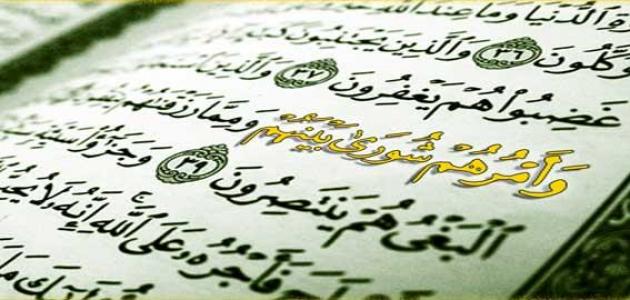 ٱلدُّنْيَا وَمَا عِندَ ٱللَّهِ
وَكَّلُونَ ٣٦ وَٱلَّذِينَ يَجْتَنِبُونَ
غَضِبُوا۟ هُمْ يَغْفِرُونَ ٣٧ وَٱلَّذِينَ
وَأَمْرُهُمْ شُورَىٰ بَيْنَهُمْ وَمِمَّا رَزَقْنَٰهُمْ
ٱلْبَغْىُ هُمْ يَنتَصِرُونَ ٣٩ وَجَزَٰٓؤُا۟ سَيِّئَةٍ
فَأَجْرُهُۥ عَلَى ٱللَّهِ إِنَّهُۥ لَا يُحِبُّ